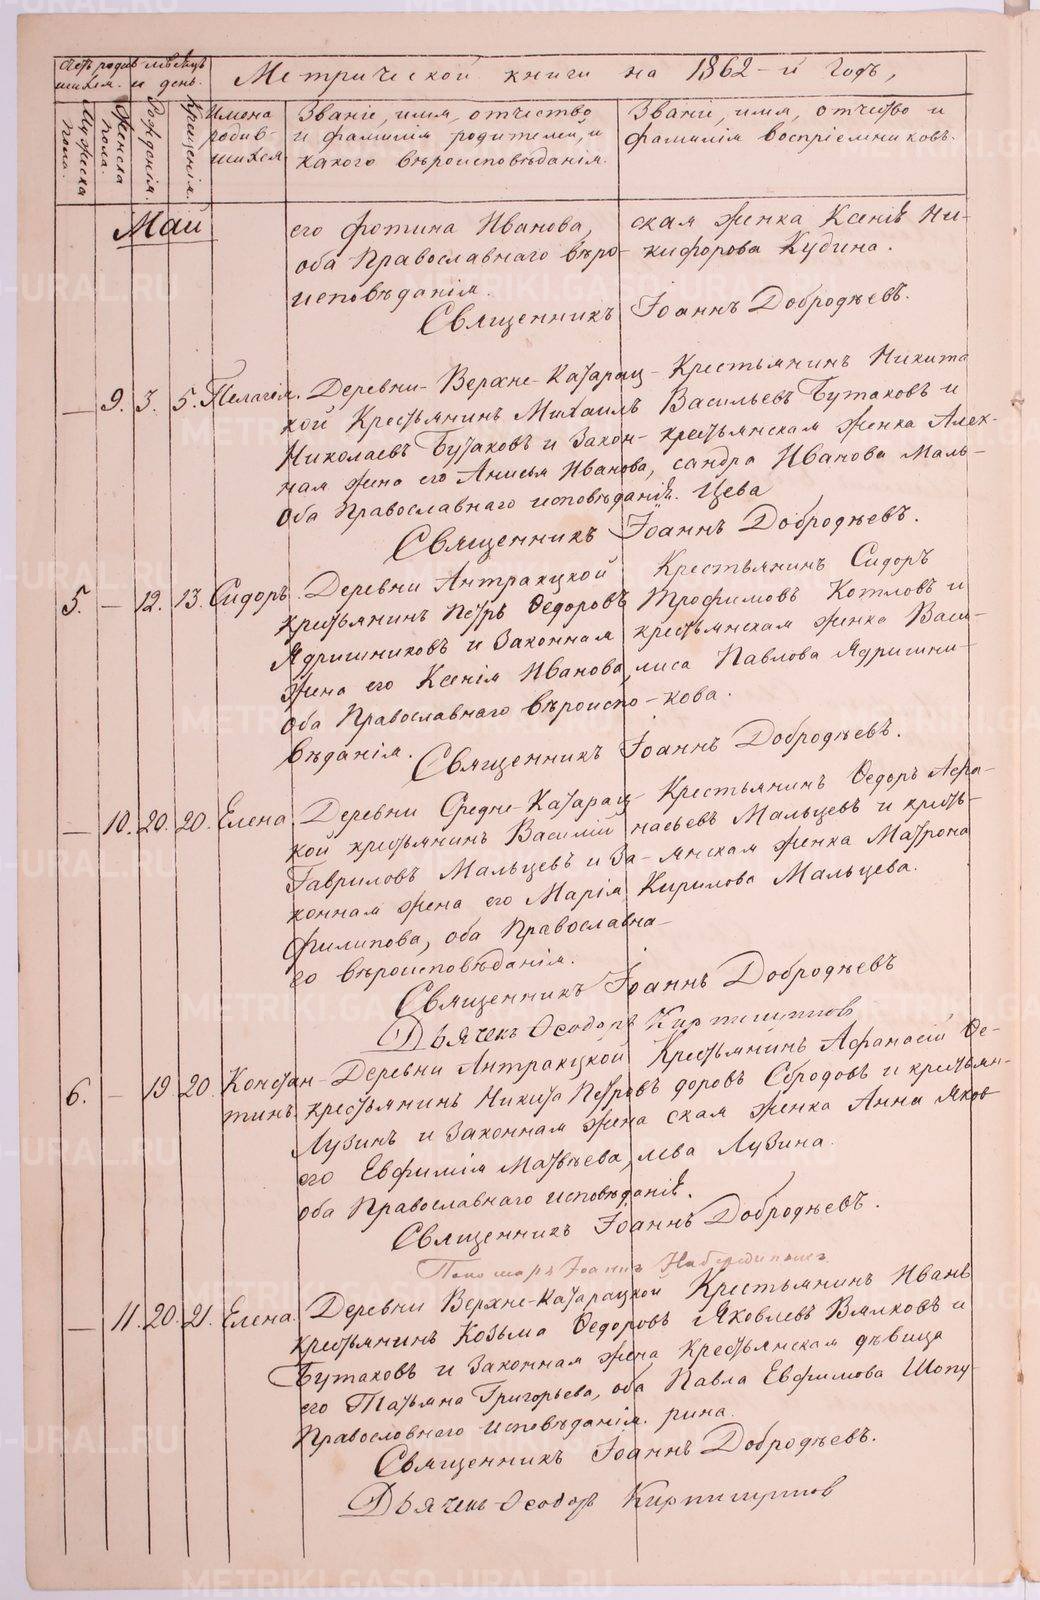 Метрической книги на 1862-й годъ,
Мужеска пола.
Женска пола.
Рожденія.
Крещенія.
Имена родив-
шихся
Званіе, имя, отчество
и фамилія родителей, и
какого вѣроисповѣданія.
Званіе, имя, отчество и
фамилія воспріемниковъ.
Май
его Фотина Иванова,
оба Православнаго вѣро-
исповѣданія.
ская женка Ксенія Ни-
кифорова Кубина.
Священникъ Іоаннъ Добродѣевъ.
— 9. 3. 5. Пелагія.
Деревни Верхне-Катарац-
кой Крестьянинъ Михаилъ
Николаевъ Бутаковъ и Закон-
ная жена его Анисья Иванова,
Оба Православнаго исповѣданія.
Крестьянинъ Никита
Васильевъ Бутаковъ и
крестьянская женка Алек-
сандра Иванова Маль-
цева
Священникъ Іоаннъ Добродѣевъ.
5. — 12. 13. Сидоръ.
Деревни Антракцкой
крестьянинъ Петръ Ѳедоровъ
Ядришниковъ и Законная
жена его Ксенія Иванова,
Оба Православнаго вѣроиспо-
вѣданія.
Крестьянинъ Сидоръ
Трофимовъ Котловъ и
крестьянская женка Васи-
лиса Павлова Ядришни-
кова.
Священникъ Іоаннъ Добродѣевъ.
— 10. 20. 20. Елена
Деревни Средне-Катарац-
кой крестьянинъ Василій
Гавриловъ Мальцевъ и За-
конная жена его Марія
Филипова, оба Православна-
го вѣроисповѣданія.
Крестьянинъ Ѳедоръ Афа-
насьевъ Мальцевъ и кресть-
янская женка Матрона
Кирилова Мальцева.
Священникъ Іоаннъ Добродѣевъ
Дьячекъ Ѳеодоръ
6. — 19. 20. Констан-
тинъ.
Деревни Антракцкой
крестьянинъ Никита Петровъ
Лузинъ и Законная жена
его Евфимія Матвѣева,
оба Православнаго исповѣданія.
Крестьянинъ Афанасій Ѳе-
доровъ Сбродовъ и крестьян-
ская женка Анна Яков-
лева Лузина.
Священникъ Іоаннъ Добродѣевъ.
Пономарь Іоаннъ
— 11. 20. 21. Елена.
Деревни Верхне-Катарацкой
крестьянинъ Козьма Ѳедоровъ
Бутаковъ и Законная жена
его Татьяна Григорьева, оба
Православнаго исповѣданія.
Крестьянинъ Иванъ
Яковлевъ Вялковъ и
Крестьянская дѣвица
Павла Евфимова Шопу-
рина.
Священникъ Іоаннъ Добродѣевъ.
Дьячекъ Ѳеодоръ
METRIKI.GASO-URAL.RU